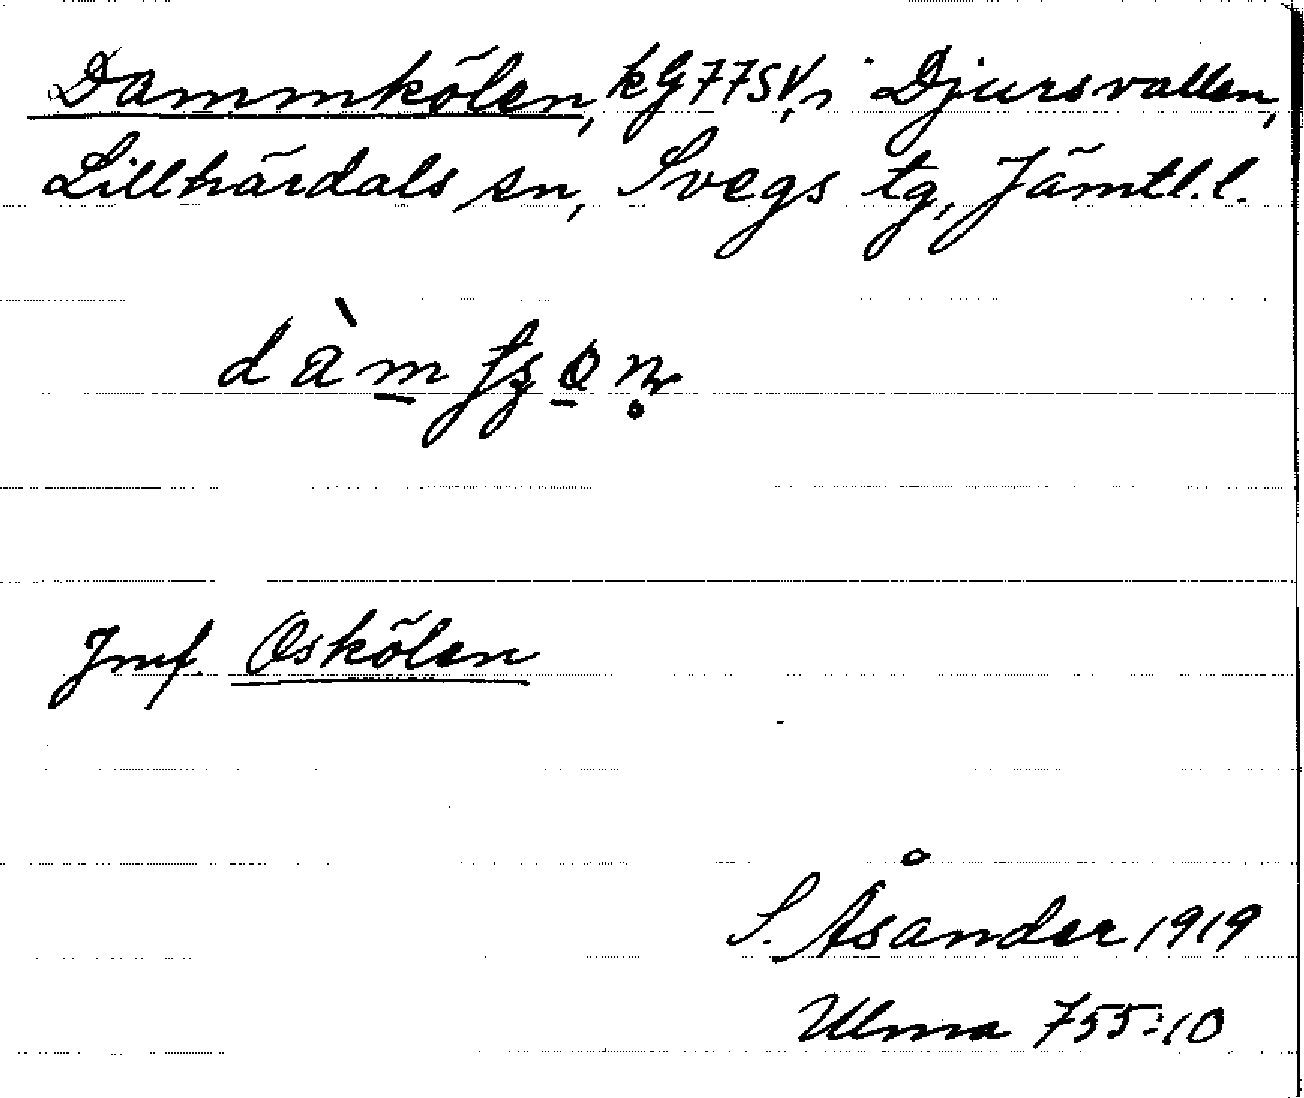 Dammkölen, kG77SV, i Djursvallen,
Lillhärdals sn, Svegs tg, Jämtl.l.
Jmf. Oskölen
S. Åsander 1919
Ulma 755:10